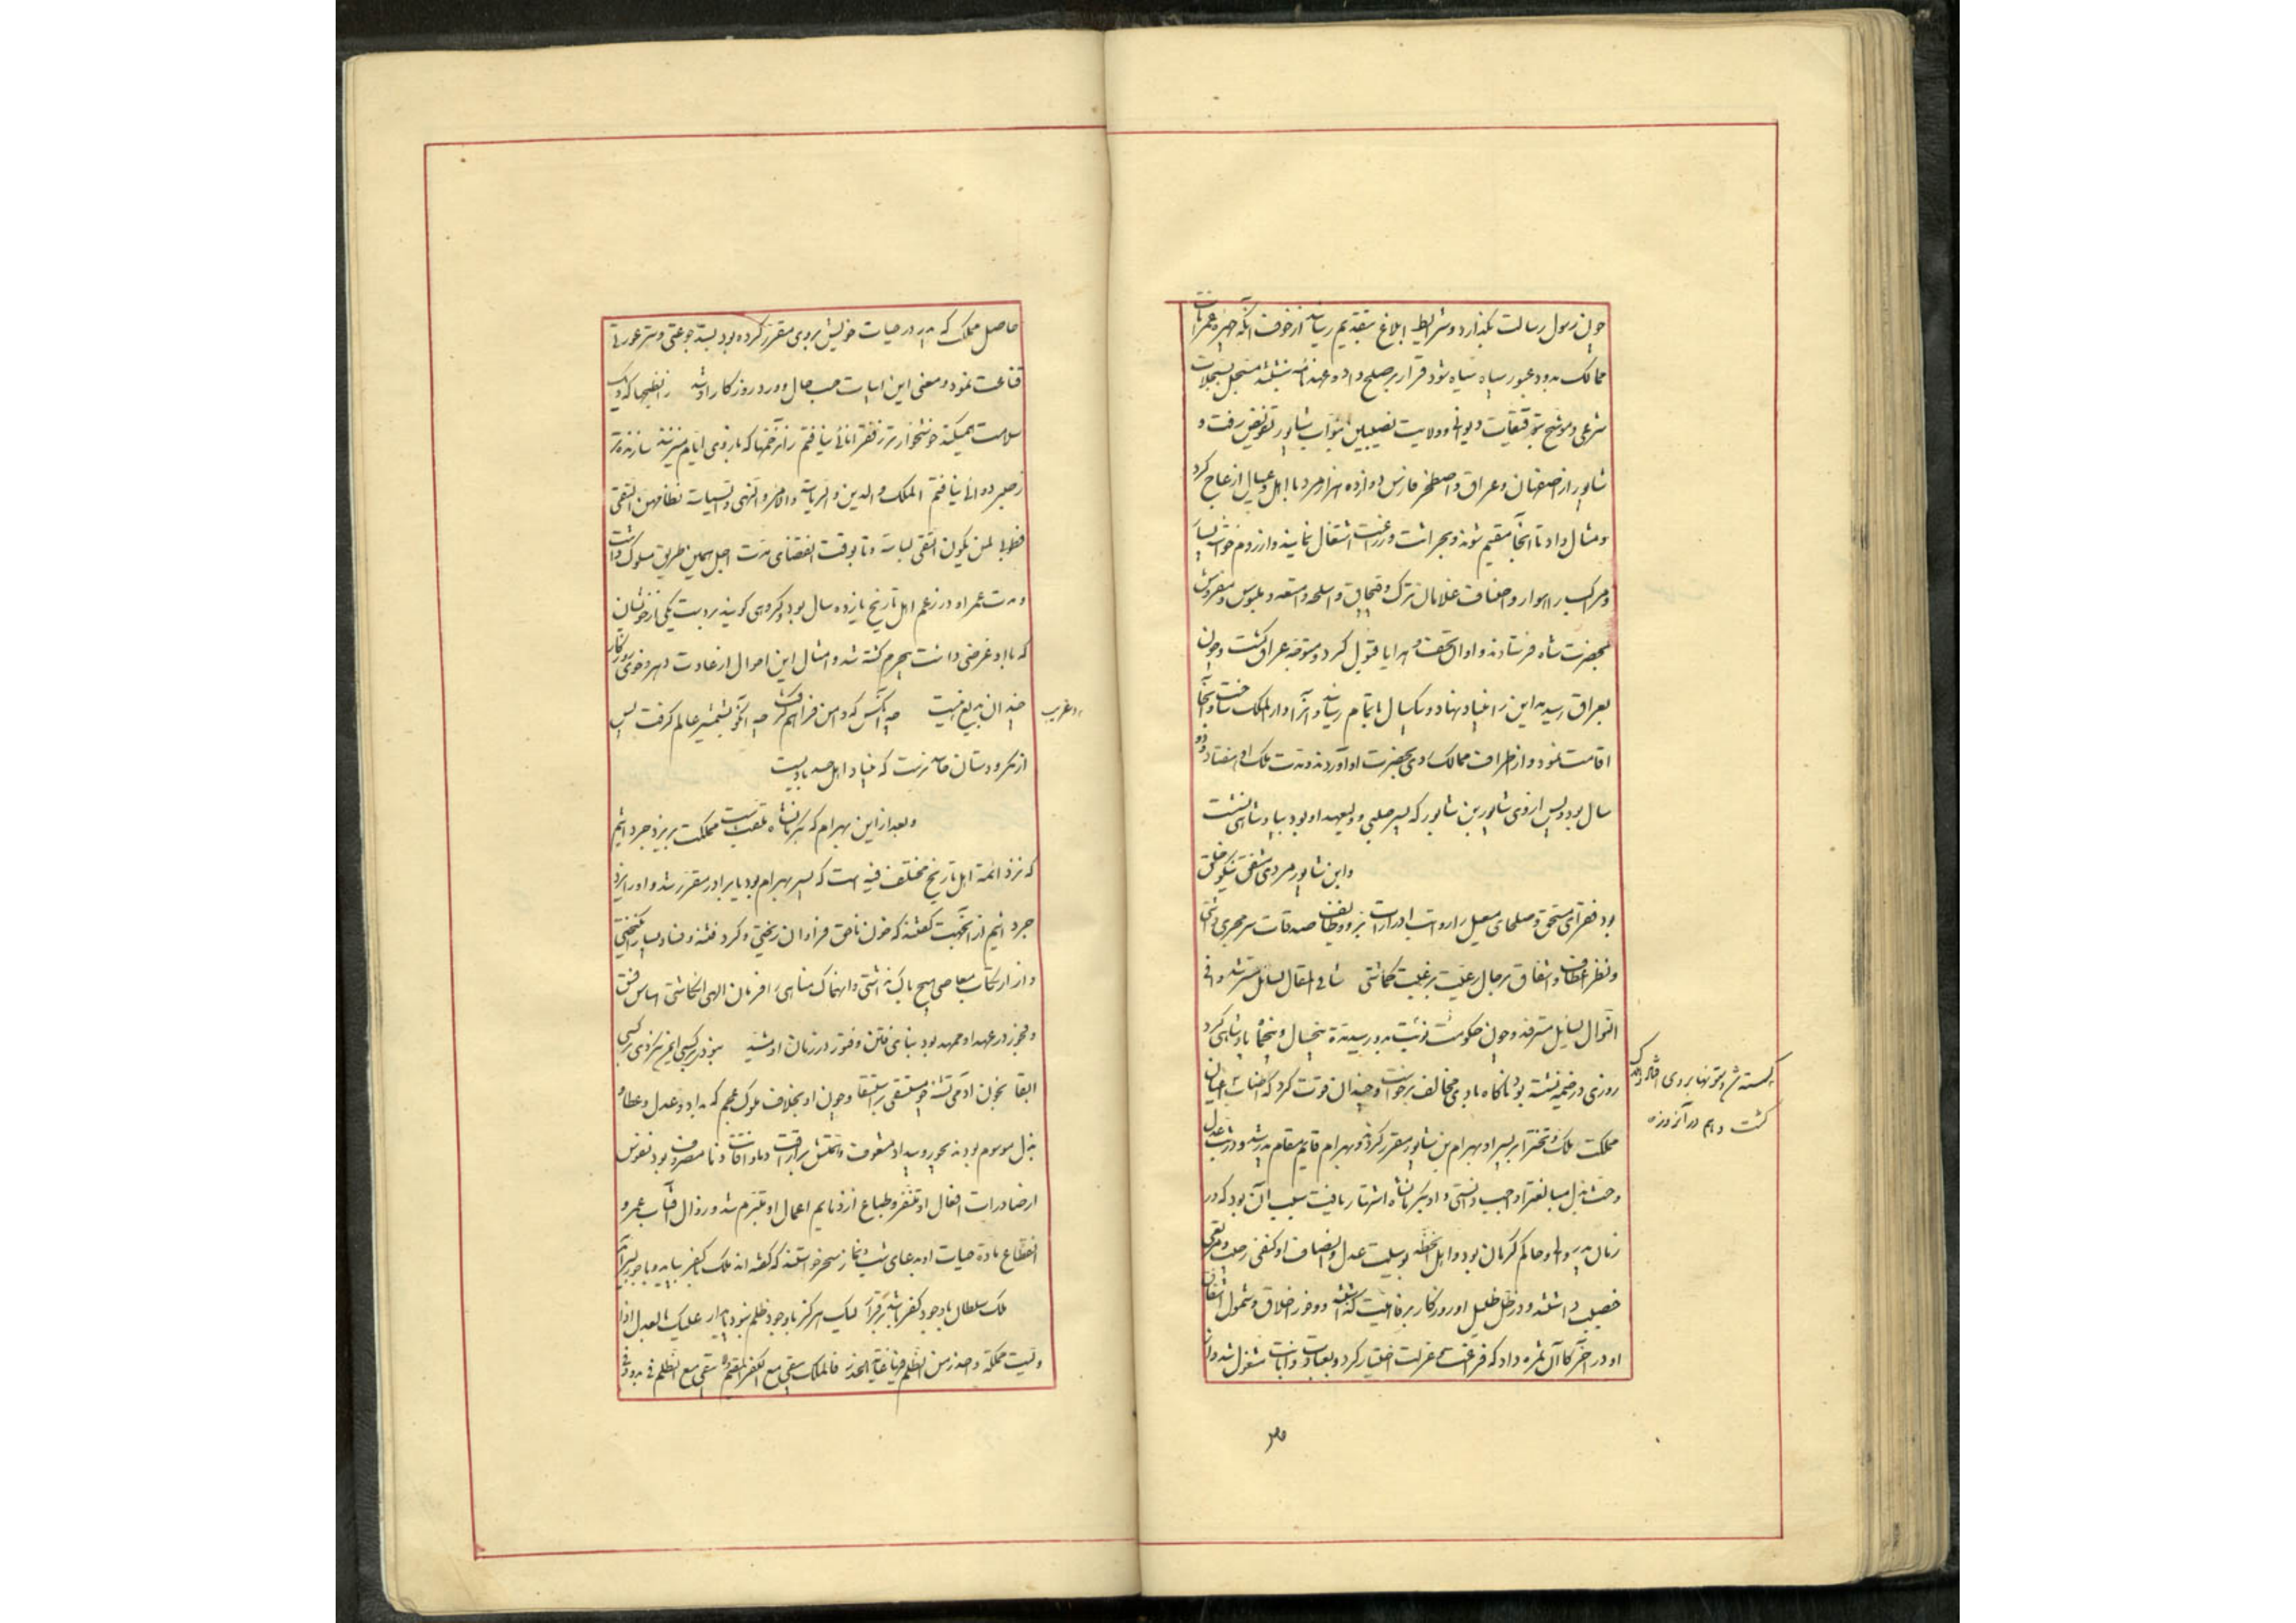 چون رسول رسالت بگذارد و شرایط ابلاغ بتقدیم رسانید از خوف آنکه چهره عمرانات
ممالک بدود عبور سپاه سیاه شود قرار بر صلح داده عهدنامه نبشتند مسجل بسجلات
شرعی و موشح بتوقیعات دیوانی و ولایت نصیبین بنواب شاپور تفویض رفت و
شاپور از اصفهان و عراق و اصطخر فارس دوازده هزار مرد با اهل و عیال ازعاج کرد
و مثال داد تا آنجا مقیم شوند و بحراثت و زراعت اشتغال نمایند و از روم
و مراکب راهوار و اصناف غلامان ترک و قبچاق و اسلحه و امتعه و ملبوس و مفروش
بحضرت شاه فرستادند و او آن تحف و هدایا قبول کرد و متوجه عراق گشت و چون
بعراق رسید مداین را بنیاد نهاد و بیکسال باتمام رسانید و آنرا دارالملک ساخت و آنجا
اقامت نمود و از اطراف ممالک بحضرت او آوردند و مدت ملک او هفتاد و دو
سال بود و پس از وی شاپور بن شاپور که پسر صلبی و ولیعهد او بود بپادشاهی نشست
و این شاپور مردی مشفق نیکو خلق
بود فقرای مستحق و صلحای معیل را رواتب ادرارات و وظایف صدقات مجری داشتی
و نظر عطاف و اشفاق بر حال رعیت برغبت گماشتی
النوال لسایل مسترفد و چون حکومت نوبت بدو رسید مدة پنجسال و پنج ماه پادشاهی کرد
روزی در خیمه نشسته بود ناگاه بادی مخالف برخواست و چندان قوت کرد که طناب
گسسته شد و ستونها بروی افتاد و هلاک
گشت و هم در آنروز
مملکت ملک و تخت را بر پسر او بهرام بن شاپور مقرر کردند و بهرام قایم مقام پدر شد و در بث عدل
و حث بذل مبالغت را واجب دانستی و او بکرمانشاه اشتهار یافت سبب آن بود که در
زمان پدر والد او حاکم کرمان بود و اهل آن خطه بوسیلت عدل و انصاف او کنفی رحیب و مرتعی
خصیب داشتند و در ظل ظلیل او روزگار برفاهیت گذاشته و وفور اخلاق و شمول اشفاق
او در آخر کار آن ثمره داد که فراغت و عزلت اختیار کرد و بعبادت و انابت مشغول شد و از
حاصل ملک که پدر در حیات خویش بروی مقرر کرده بود بسد جوعتی و ستر عورتی
قناعت نمود و معنی این ابیات حسب حال و ورد روزگار او شد ز اقطیعها که
سلامت همیکند خوشخوارتر ز فقر انائی نیافتم ز آن زخمها که بازوی ایام میزند سازنده تر
ز صبر دوائی نیافتم الملک والدین والریاسة والامر والنهی والسیاسة نظامهن التقی
فطوبی لمن یکون التقی لباسه و تا بوقت انقضای مدت اجل همین طریق مسلوک داشت
و مدت عمر او در زعم اهل تاریخ یازده سال بود و گروهی گویند بر دست یکی از خویشان
که با او غرضی داشت بجرم کشته شد و امثال این احوال از عادت دهر و خوی روزگار
چندان بدیع و غریب نیست چه آنکس که دامن فراهم گرفت چه آنکو بشمشیر عالم گرفت پس
از مکر و دستان که بنیاد اهل حسد باد نیست
و بعد از این بهرام که بکرمانشاه ملقب است مملکت بر یزدجرد اثیم
که نزد ائمه اهل تاریخ مختلف فیه است که پسر بهرام بود یا برادر مقرر شد و او را یزد
جرد اثیم از آنجهت گفتند که خون ناحق فراوان ریختی و گرد فتنه و فساد بسیار انگیختی
و از ارتکاب معاصی هیچ باک نداشتی و انهماک مناهی را فرمان الهی انگاشتی اساس فسق
و فجور در عهد او ممهد بود بنای فتن و فتور در زمان او مشید
ابقا بخون آدمی تشنه چو مستسقی باستسقا و چون او بخلاف ملوک عجم که بداد و عدل و عطا و
بذل موسوم بودند بجور و بیداد مشعوف و همتش بر اراقت دماء و اقتنا
از صادرات افعال او متنفر و طباع از ذمایم اعمال او متبرم شد و زوال آفتاب عمر و
انقطاع ماده حیات او بدعای شب و نماز سحر خواستند که گفته اند ملک با کفر بپاید و با جور نپاید
ملک سلطان با وجود کفر باشد برقرار لیک هرگز با وجود ظلم نبود پایدار علیک بالعدل اذا
ولیت مملکة واحذر من الظلم فیها غایة الحذر فالملک یبقی مع الکفر المقیم ولا یبقی مع الظلم فی بدو وفی